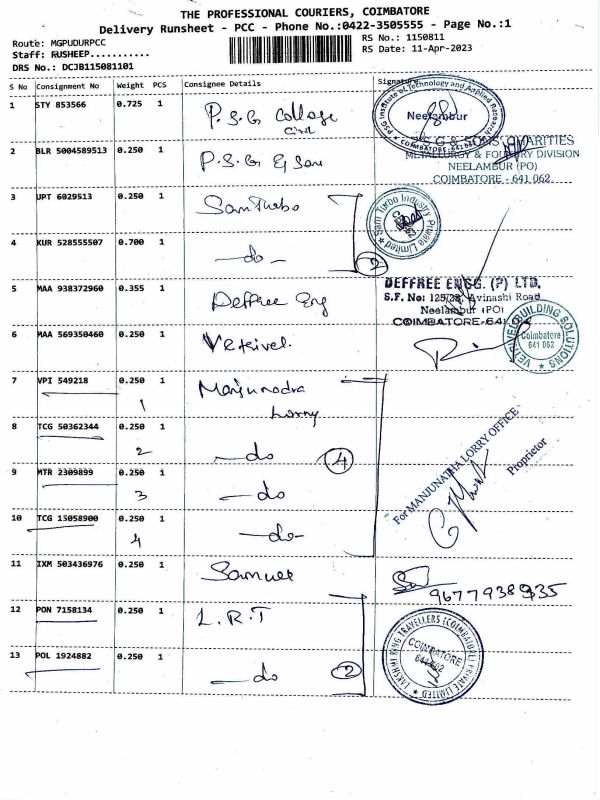 THE PROFESSIONAL COURIERS, COIMBATORE
Delivery Runsheet - PCC - Phone No.:0422-3505555 - Page No.:1
Route: MGPUDURPCC
Staff: RUSHEEP...........
DRS No.: DCJB115081101
RS No.: 1150811
RS Date: 11-Apr-2023
S No Consignment No Weight PCS Consignee Details Signature
1 STY 853566 0.725 1 P.S.G College
PSG Institute of Technology and Applied Research
Neelambur
COIMBATORE-641 062
2 BLR 5004589513 0.250 1 P.S.G & Son
P.S.G & SONS' CHARITIES
METALLURGY & FOUNDRY DIVISION
NEELAMBUR (PO)
COIMBATORE - 641 062.
3 UPT 6029513 0.250 1 Sam Turbo
Sam Turbo Industry Private Limited
4 KUR 528555507 0.700 1 —do— 2
5 MAA 938372960 0.355 1 Deffree Eng
DEFFREE ENGG. (P) LTD.
S.F. No: 125/2B, Avinashi Road
Neelambur (PO)
COIMBATORE-641 062
6 MAA 569350460 0.250 1 Vetrivel.
VETRIVEL BUILDING SOLUTIONS
Coimbatore
641 062
7 VPI 549218 0.250 1 Manjunadra
1 Lorry
8 TCG 50362344 0.250 1
2 —do 4
9 MTR 2309899 0.250 1
3 —do
For MANJUNATHA LORRY OFFICE
Proprietor
10 TCG 15058900 0.250 1
4 —do—
11 IXM 503436976 0.250 1 Samuel
9677938935
12 PON 7158134 0.250 1 L.R.T
LAKSHMI RING TRAVELLERS (COIMBATORE) PRIVATE LIMITED
COIMBATORE
641 062
13 POL 1924882 0.250 1 —do 2